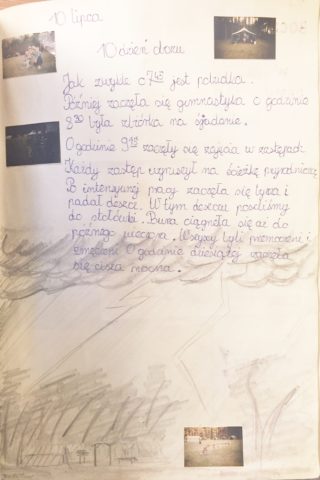 10 lipca
10 dzień obozu
Jak zwykle o 7⁴⁵ jest pobudka.
Później zaczęła się gimnastyka o godzinie
8³⁰ była zbiórka na śjadanie.
O godzinie 9¹⁵ zaczęły się zajęcia w zastępach.
Każdy zastęp wyruszył na ścieżkę przyrodniczą.
W intensywnej pracy zaczęła się burza i
padał deszcz. W tym deszczu poszliśmy
do stołówki. Burza ciągnęła się aż do
późnego wieczora. Wszyscy byli przemoczeni i
zmęczeni O godzinie dziesiątej zaczęła
się cisza nocna.